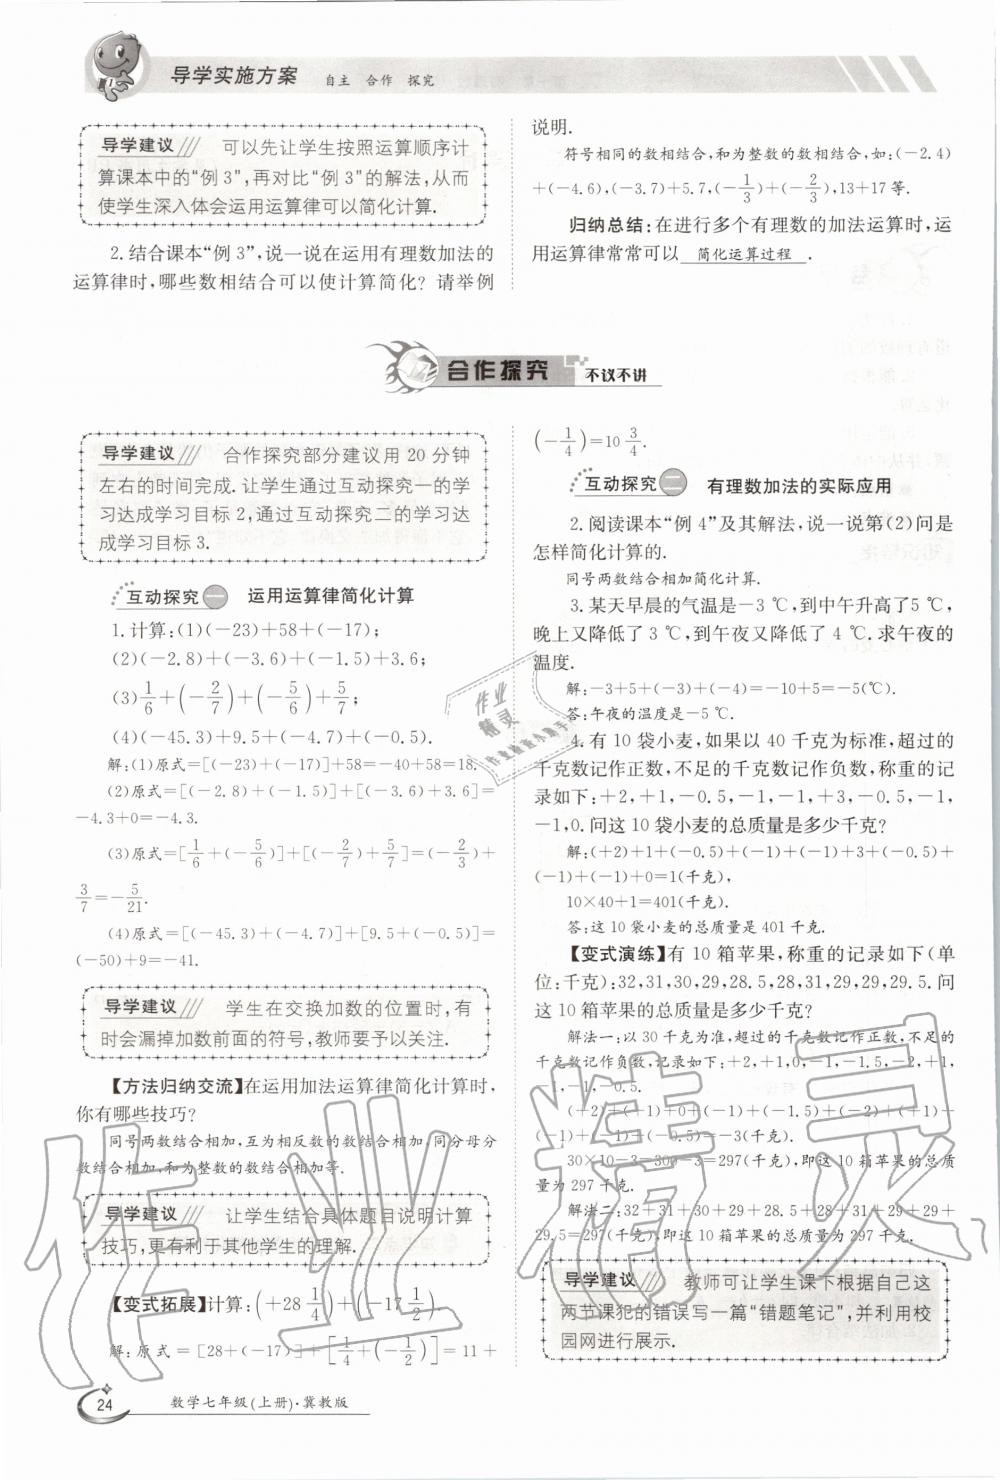 导学实施方案 自主 合作 探究
导学建议 可以先让学生按照运算顺序计
算课本中的“例 3”,再对比“例 3”的解法,从而
使学生深入体会运用运算律可以简化计算.
2.结合课本“例 3”,说一说在运用有理数加法的
运算律时,哪些数相结合可以使计算简化? 请举例
说明.
符号相同的数相结合,和为整数的数相结合,如:(-2.4)
+(-4.6),(-3.7)+5.7,(-1/3)+(-2/3),13+17 等.
归纳总结:在进行多个有理数的加法运算时,运
用运算律常常可以 简化运算过程 .
合作探究 不议不讲
导学建议 合作探究部分建议用 20 分钟
左右的时间完成. 让学生通过互动探究一的学
习达成学习目标 2,通过互动探究二的学习达
成学习目标 3.
互动探究一 运用运算律简化计算
1.计算:(1)(-23)+58+(-17);
(2)(-2.8)+(-3.6)+(-1.5)+3.6;
(3)1/6+(-2/7)+(-5/6)+5/7;
(4)(-45.3)+9.5+(-4.7)+(-0.5).
解:(1)原式=[(-23)+(-17)]+58=-40+58=18.
(2)原式=[(-2.8)+(-1.5)]+[(-3.6)+3.6]=
-4.3+0=-4.3.
(3)原式=[1/6+(-5/6)]+[(-2/7)+5/7]=(-2/3)+
3/7=-5/21.
(4)原式=[(-45.3)+(-4.7)]+[9.5+(-0.5)]=
(-50)+9=-41.
导学建议 学生在交换加数的位置时,有
时会漏掉加数前面的符号,教师要予以关注.
【方法归纳交流】在运用加法运算律简化计算时,
你有哪些技巧?
同号两数结合相加,互为相反数的数结合相加,同分母分
数结合相加,和为整数的数结合相加等.
导学建议 让学生结合具体题目说明计算
技巧,更有利于其他学生的理解.
【变式拓展】计算:(+28 1/4)+(-17 1/2).
解:原式=[28+(-17)]+[1/4+(-1/2)]=11+
(-1/4)=10 3/4.
互动探究二 有理数加法的实际应用
2.阅读课本“例 4”及其解法,说一说第(2)问是
怎样简化计算的.
同号两数结合相加简化计算.
3.某天早晨的气温是-3 ℃,到中午升高了5 ℃,
晚上又降低了 3 ℃,到午夜又降低了 4 ℃.求午夜的
温度.
解:-3+5+(-3)+(-4)=-10+5=-5(℃).
答:午夜的温度是-5 ℃.
4.有 10 袋小麦,如果以 40 千克为标准,超过的
千克数记作正数,不足的千克数记作负数,称重的记
录如下:+2,+1,-0.5,-1,-1,+3,-0.5,-1,
-1,0.问这 10 袋小麦的总质量是多少千克?
解:(+2)+1+(-0.5)+(-1)+(-1)+3+(-0.5)+
(-1)+(-1)+0=1(千克),
10×40+1=401(千克).
答:这 10 袋小麦的总质量是 401 千克.
【变式演练】有 10 箱苹果,称重的记录如下(单
位:千克):32,31,30,29,28.5,28,31,29,29,29.5.问
这 10 箱苹果的总质量是多少千克?
解法一:以 30 千克为准,超过的千克数记作正数,不足的
千克数记作负数,记录如下:+2,+1,0,-1,-1.5,-2,+1,
-1,-1,-0.5.
(+2)+(+1)+0+(-1)+(-1.5)+(-2)+(+1)+
(-1)+(-1)+(-0.5)=-3(千克).
30×10-3=300-3=297(千克),即这 10 箱苹果的总质
量为 297 千克.
解法二:32+31+30+29+28.5+28+31+29+29+
29.5=297(千克),即这 10 箱苹果的总质量为 297 千克.
导学建议 教师可让学生课下根据自己这
两节课犯的错误写一篇“错题笔记”,并利用校
园网进行展示.
24 数学七年级(上册)·冀教版
作业精灵